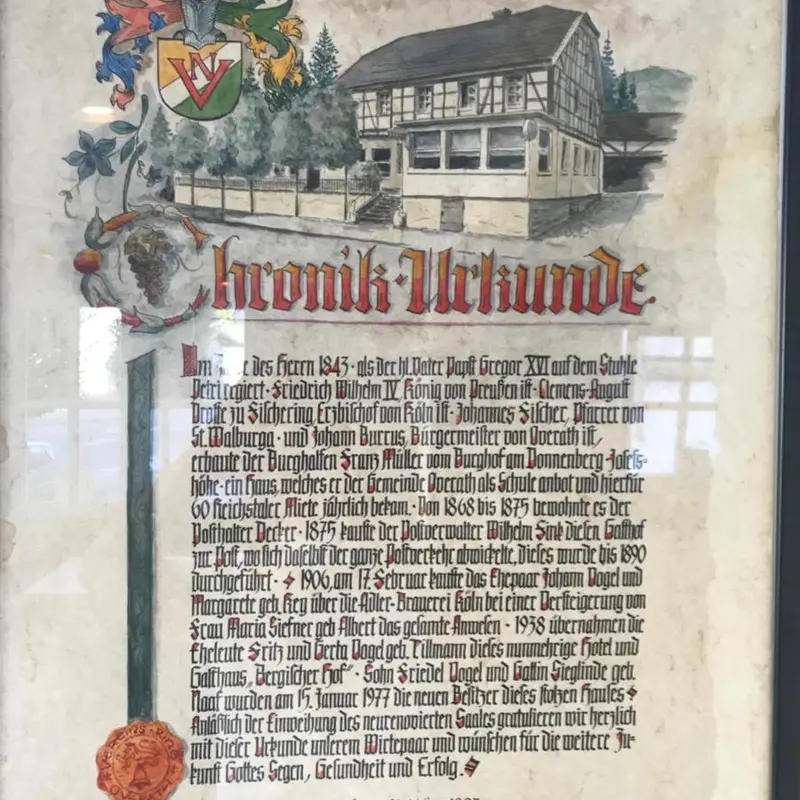 NV
Chronik·Urkunde
Im Jahre des Herrn 1843 · als der hl. Vater Papst Gregor XVI auf dem Stuhle
Petri regiert · Friedrich Wilhelm IV, König von Preußen ist · Clemens-August
Droste zu Fischering, Erzbischof von Köln ist · Johannes Fischer, Pfarrer von
St. Walburga · und Johann Burrus, Bürgermeister von Overath ist,
erbaute der Burghalfen Franz Müller vom Burghof am Donnenberg · Josefs-
höhe · ein Haus, welches er der Gemeinde Overath als Schule anbot und hierfür
60 Reichstaler Miete jährlich bekam. · Von 1868 bis 1875 bewohnte es der
Posthalter Decker · 1875 kaufte der Postverwalter Wilhelm Sink diesen Gasthof
zur Post, wo sich daselbst der ganze Postverkehr abwickelte, dieses wurde bis 1890
durchgeführt · 1906, am 17. Februar kaufte das Ehepaar Johann Vogel und
Margarete geb. Key über die Adler-Brauerei Köln bei einer Versteigerung von
Frau Maria Siefner geb Albert das gesamte Anwesen · 1938 übernahmen die
Eheleute Fritz und Gerta Vogel geb. Tillmann dieses nunmehrige Hotel und
Gasthaus „Bergischer Hof“ · Sohn Friedel Vogel und Gattin Sieglinde geb.
Naaf wurden am 15. Januar 1977 die neuen Besitzer dieses stolzen Hauses
Anläßlich der Einweihung des neurenovierten Saales gratulieren wir herzlich
mit dieser Urkunde unserem Wirtepaar und wünschen für die weitere Zu-
kunft Gottes Segen, Gesundheit und Erfolg.